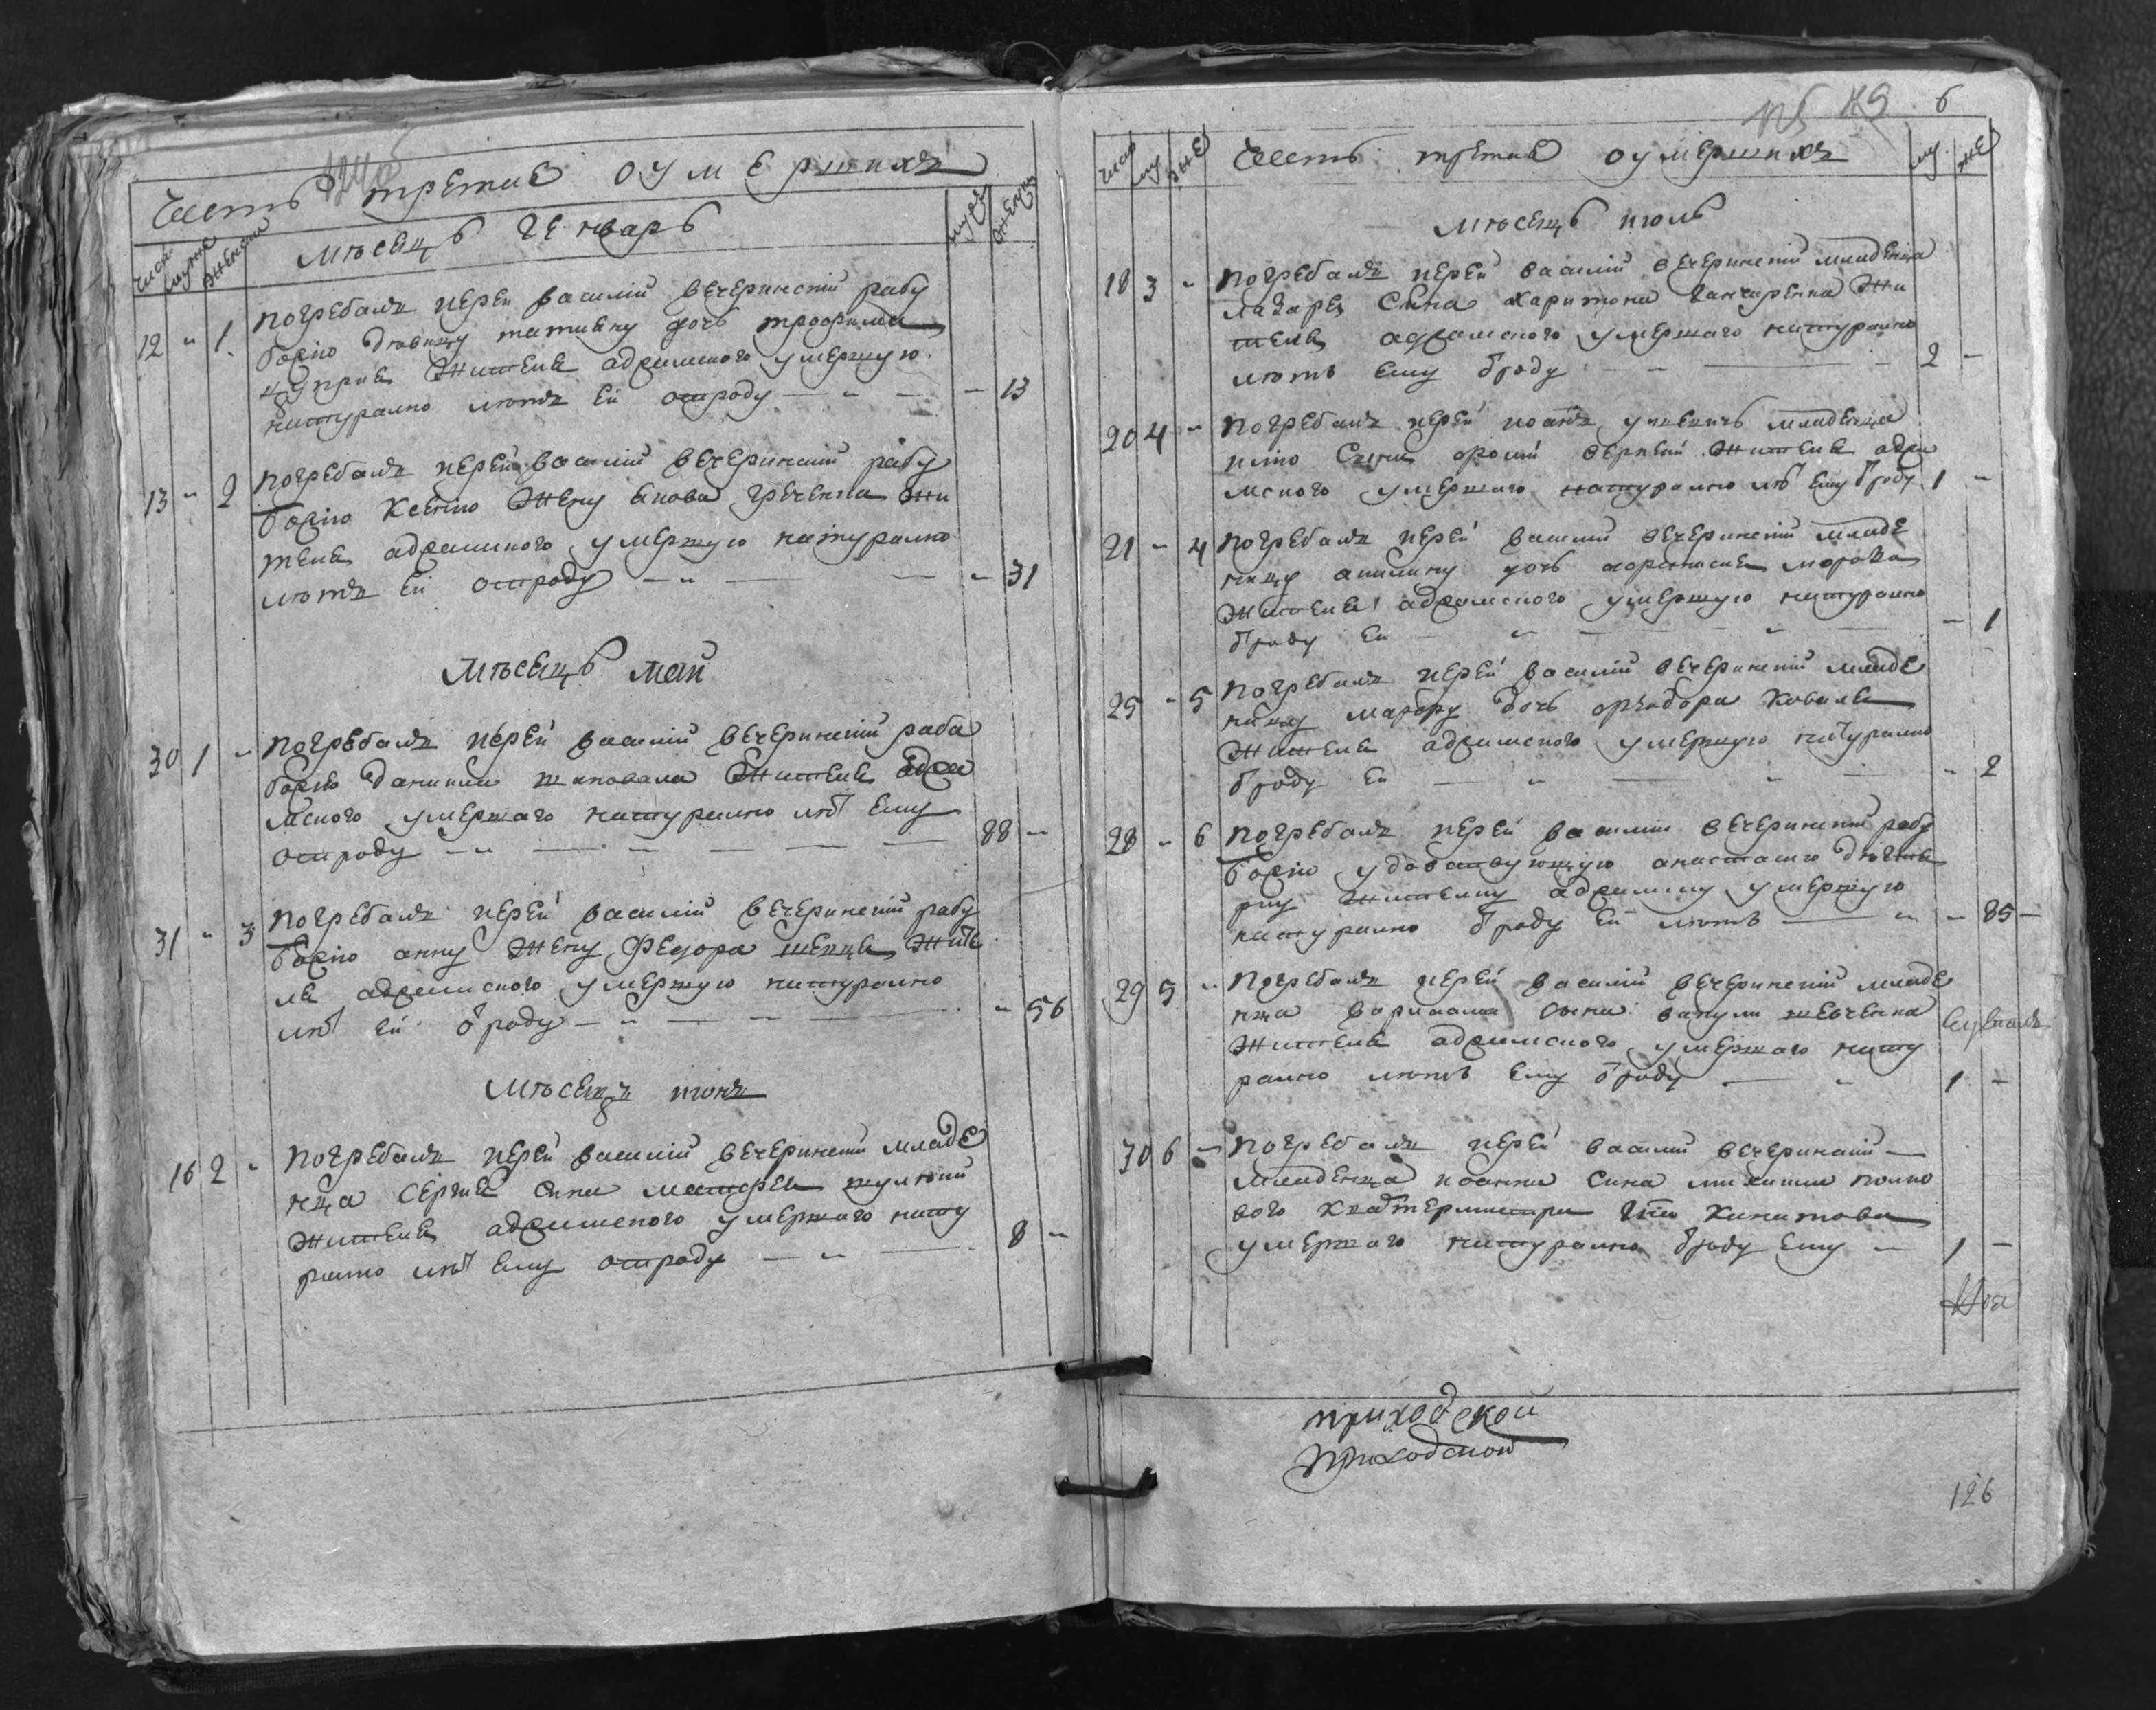 Часть третия оумерших
числ мужес женски
месець генварь
мужес женски
12 " 1. погребалъ иерей василий вечеринский рабу
божію девицу татияну дочь трофима
цуприя жителя адамского умершую
натурално летъ ей отроду — " — " 13
13 " 2 погребалъ иерей василий вечеринский рабу
божію ксению жену якова греченка жи
теля адамского умершую натурално
летъ ей отроду — " — — " 31
месець май
30 1 " погребалъ иерей василий вечеринский раба
божия даниила шаповала жителя ада
мского умершаго натурално лет ему
отроду — " — — — — 88 "
31 " 3 погребалъ иерей василий вечеринский рабу
божію анну жену федора шевця жите
ля адамского умершую натурално
лет ей отроду — " — — " 56
месецъ июнъ
16 2 " погребалъ иерей василий вечеринский младе
нца сергия сина матфея
жителя адамского умершаго нату
рално лет ему отроду — " — 8 "
6
числ му же
Часть третия оумершихъ
му. же
месець июль
18 3 " погребалъ иерей василий вечеринский младенца
лазаря сина харитона ганчаренка жи
теля адамского умершаго натурално
леть ему броду — — — 2 —
20 4 " погребалъ иерей иоанъ младенца
илию сина жителя ада
мского умершаго натурално ле ему броду 1 "
21 " 4 погребалъ иерей василий вечеринский младе
ницу акилину дочь мороза
жителя адамского умершую натурално
броду ей — " — — " — " 1
25 " 5 погребалъ иерей василий вечеринский младе
ницу марфу дочь феодора коваля
жителя адамского умершую натурално
броду ей — " — " — " 2
28 " 6 погребалъ иерей василий вечеринский рабу
божію удовствующую анастасию
жителку адамску умершую
натурално броду ей леть — " — 85 —
29 5 " погребалъ иерей василий вечеринский младе
нца сина вакулы шевченка
жителя адамского умершаго нату
рално леть ему броду — " 1 —
30 6 " погребалъ иерей василий вечеринский —
младенца иоанна сина полко
вого квартермистра
умершаго натурално броду ему — 1 —
приходской
Приходской
126